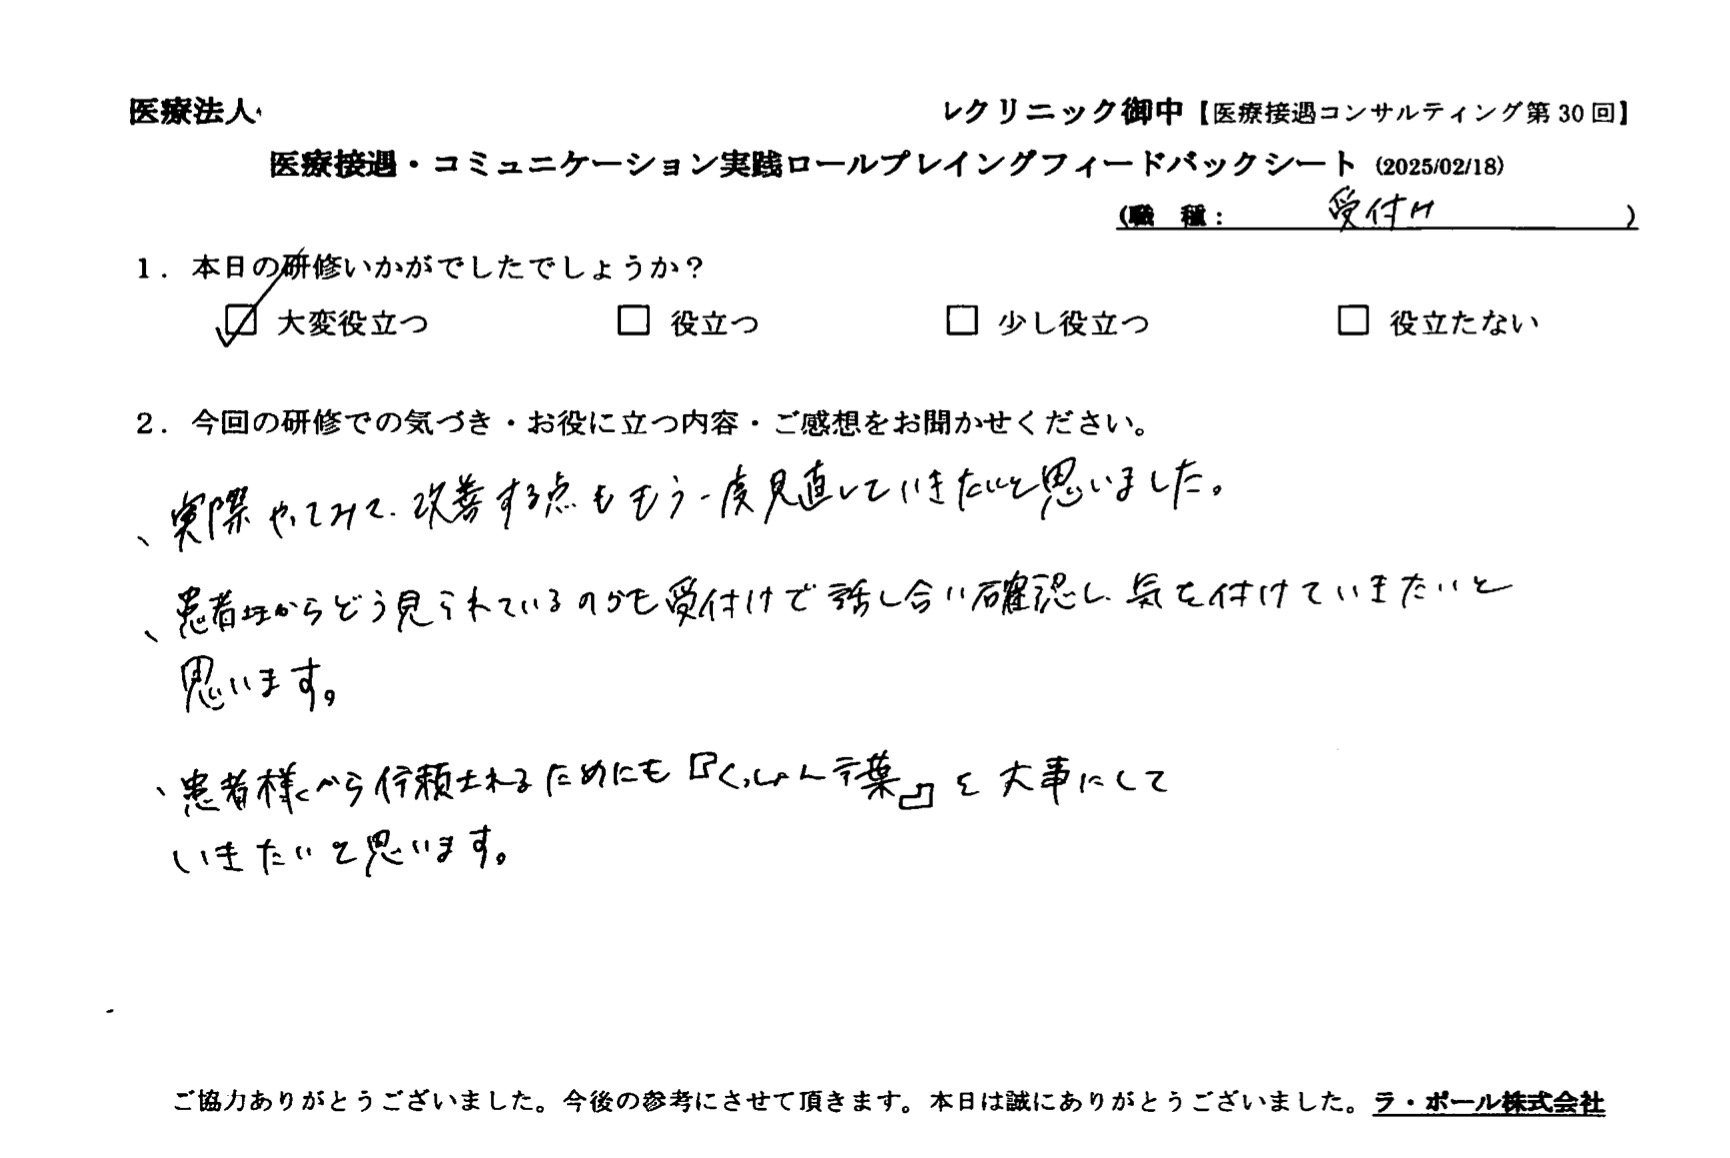 医療法人
レクリニック御中【医療接遇コンサルティング第30回】
医療接遇・コミュニケーション実践ロールプレイングフィードバックシート (2025/02/18)
(職 種: 受付け )
1. 本日の研修いかがでしたでしょうか?
☑ 大変役立つ □ 役立つ □ 少し役立つ □ 役立たない
2. 今回の研修での気づき・お役に立つ内容・ご感想をお聞かせください。
、実際やってみて、改善する点ももう一度見直していきたいと思いました。
、患者様からどう見られているのかも受付けで話し合い確認し、気を付けていきたいと
思います。
、患者様から信頼されるためにも『くっしょん言葉』を大事にして
いきたいと思います。
ご協力ありがとうございました。今後の参考にさせて頂きます。本日は誠にありがとうございました。ラ・ポール株式会社